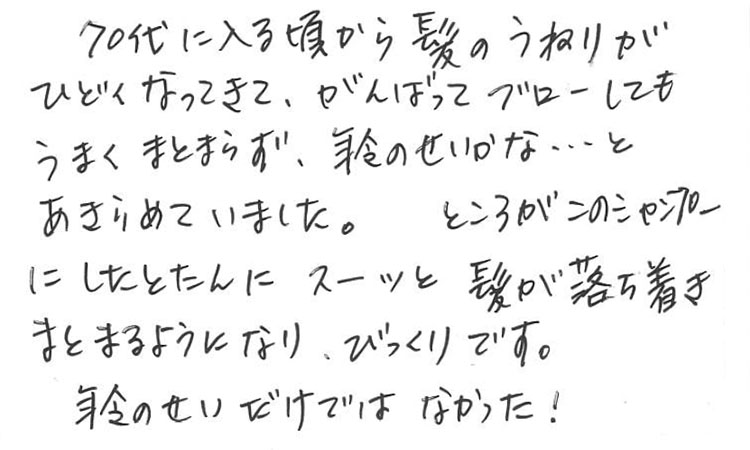 70代に入る頃から髪のうねりが
ひどくなってきて、がんばってブローしても
うまくまとまらず、年令のせいかな…と
あきらめていました。 ところがこのシャンプー
にしたとたんに スーッと 髪が落ち着き
まとまるようになり、びっくりです。
年令のせいだけではなかった！